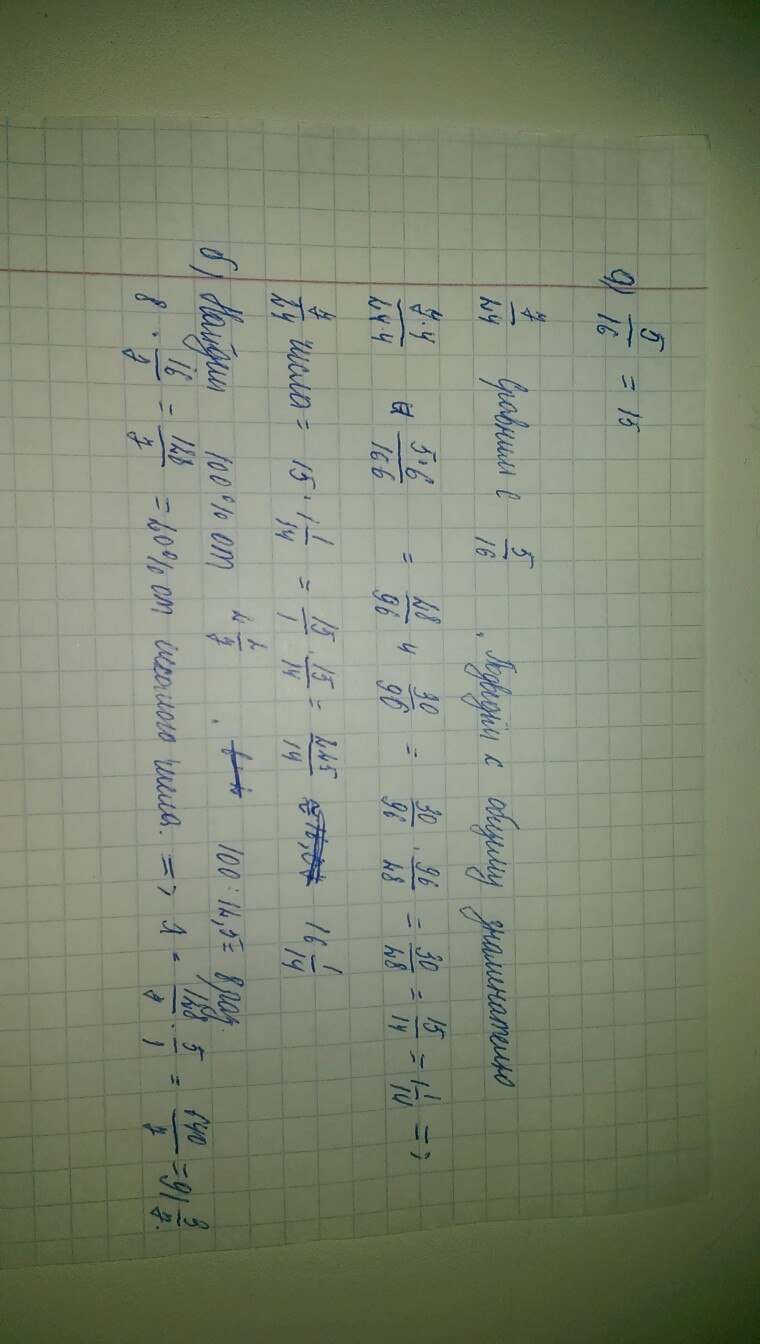 а) 5/16 = 15
7/24 сравним с 5/16. Подведём к общему знаменателю
7·4/24·4 и 5·6/16·6 = 28/96 и 30/96 = 30/96 · 96/28 = 30/28 = 15/14 = 1 1/14 =>
7/24 числа = 15 · 1 1/14 = 15/1 · 15/14 = 225/14 16 1/14
б) Найдём 100% от 2 2/7. 100:12,5= 8 раз
8 · 16/7 = 128/7 = 20% от искомого числа. => x = 128/7 · 5/1 = 640/7 = 91 3/7.